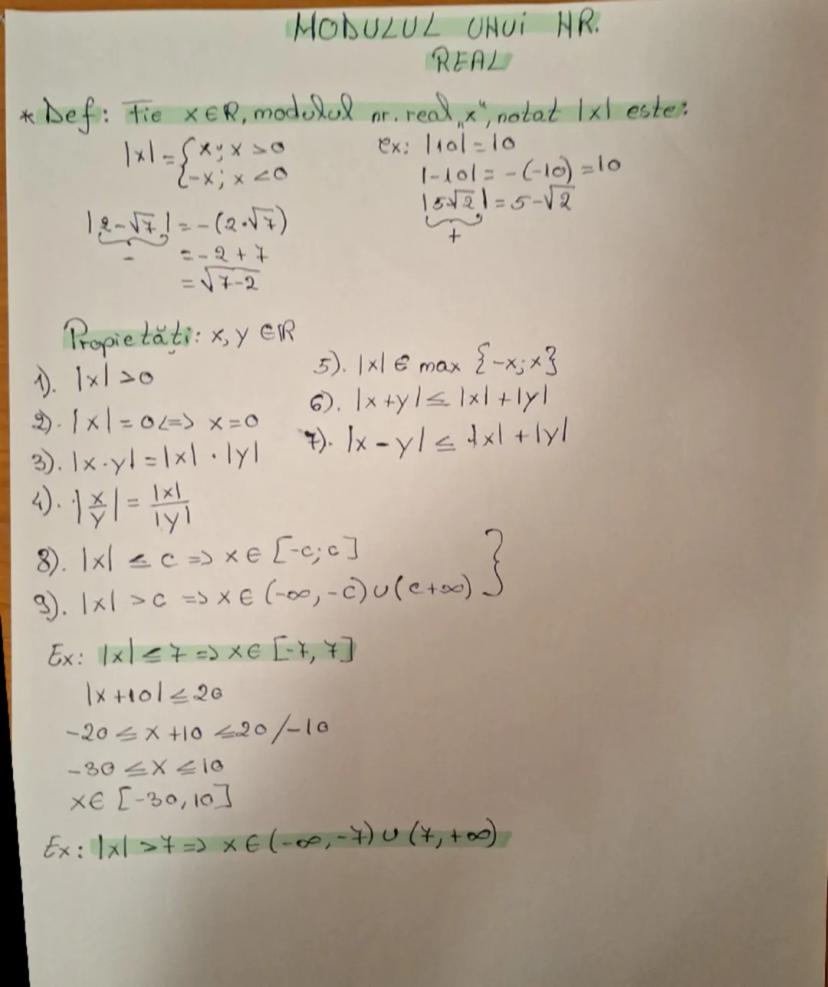 MODULUL UNUI NR.
REAL
* Def: Fie x∈R, modulul nr. real „x", notat |x| este:
|x| = { x; x > 0
{ -x; x < 0
ex: |10| = 10
|-10| = -(-10) = 10
|5√2| = 5-√2
+
|2-√7| = -(2·√7)
- = -2+7
= √7-2
Propietăți: x, y ∈ R
1). |x| > 0
2). |x| = 0 <=> x = 0
3). |x·y| = |x| · |y|
4). |x/y| = |x|/|y|
5). |x| ∈ max {-x; x}
6). |x+y| ≤ |x| + |y|
7). |x-y| ≤ |x| + |y|
8). |x| ≤ c => x ∈ [-c; c]
9). |x| > c => x ∈ (-∞, -c) ∪ (c+∞) }
Ex: |x| ≤ 7 => x ∈ [-7, 7]
|x+10| ≤ 20
-20 ≤ x +10 ≤ 20 /-10
-30 ≤ x ≤ 10
x ∈ [-30, 10]
Ex: |x| > 7 => x ∈ (-∞, -7) ∪ (7, +∞)